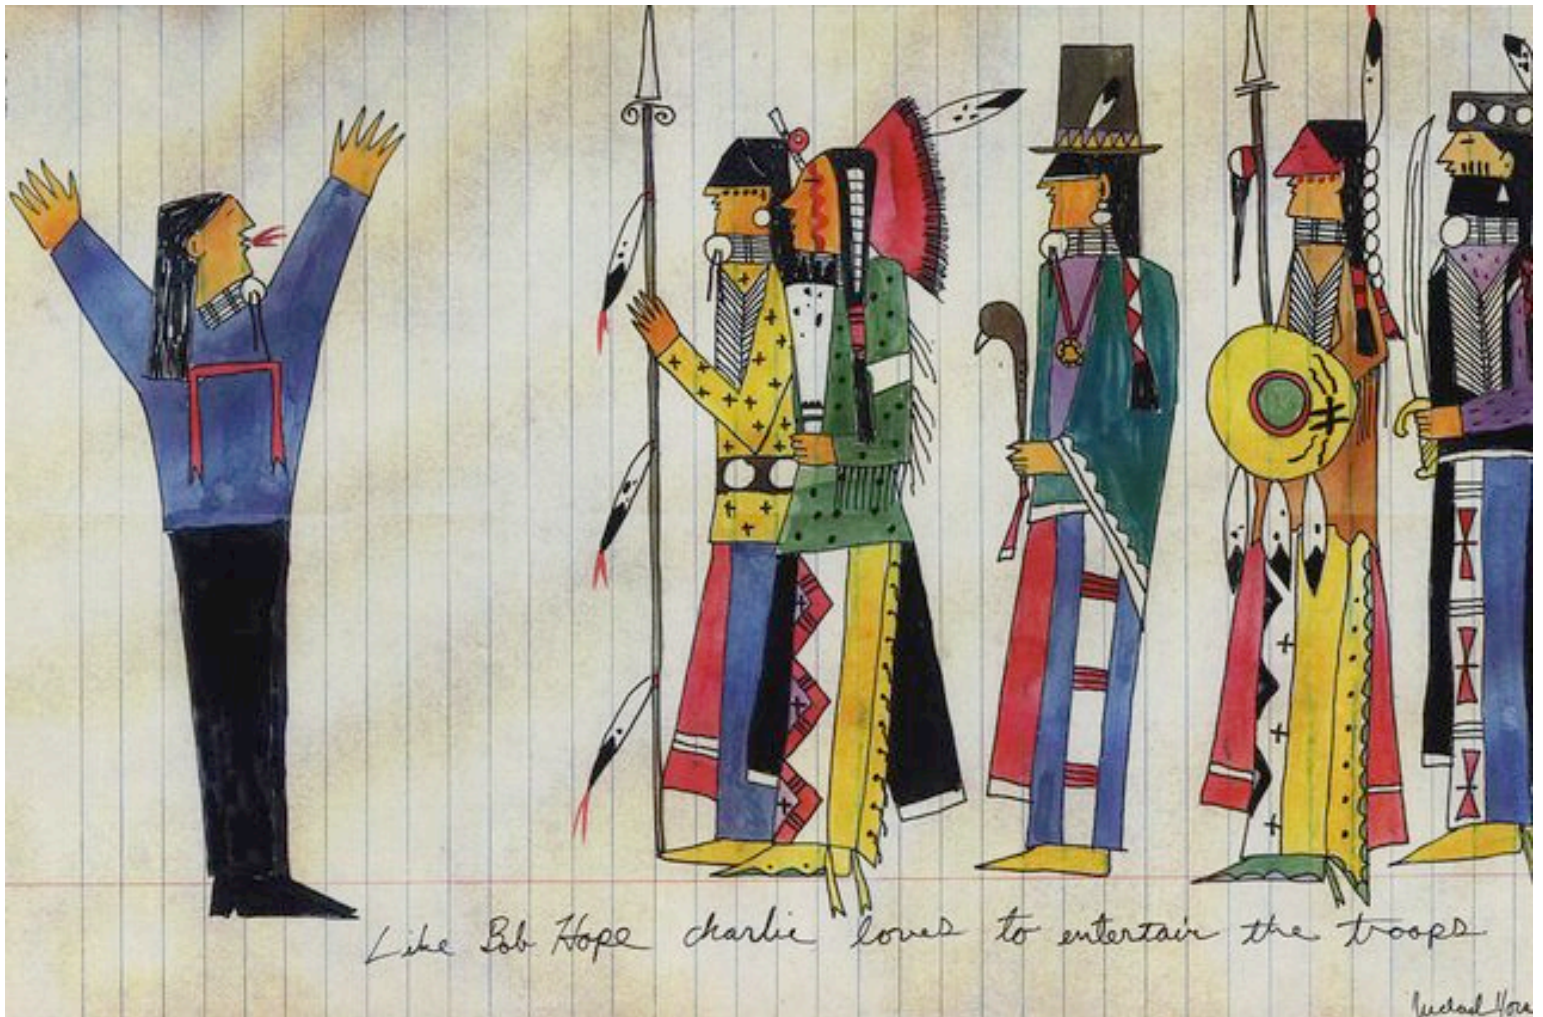 Like Bob Hope charlie loves to entertain the troops
Michael